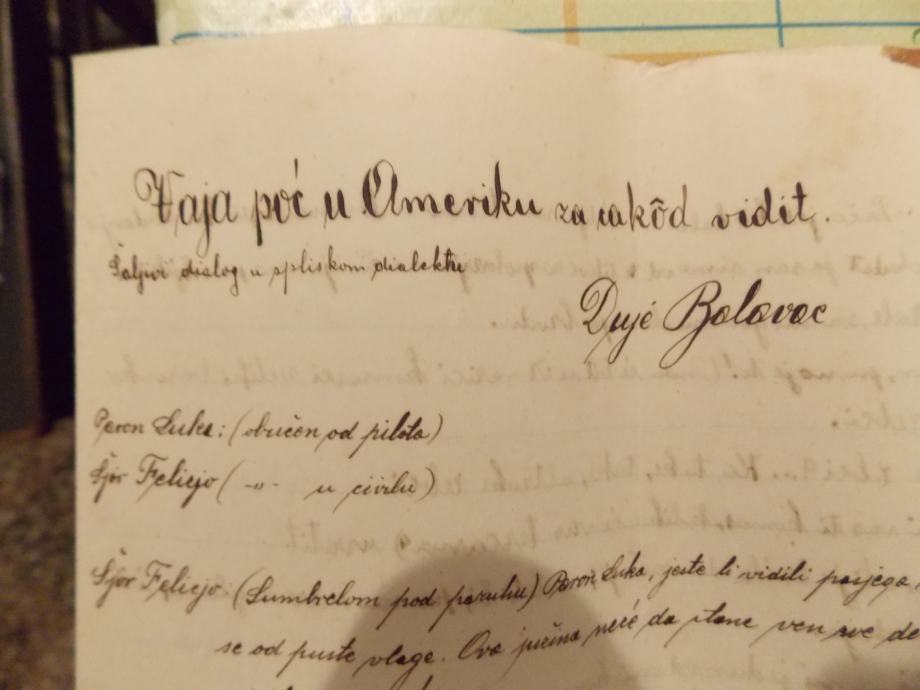 Vaja poć u Ameriku za rakôd vidit.
Šaljivi dialog u spliskom dialektu
Dujé Balavac
Paron Luka: (obučen od pilota)
Šjor Felicjo ( -„- u civilu)
Šjor Felicjo: (Lumbrelom pod pazuhu) Paron Luka, jeste li vidili pasjega
se od puste vlage. Ova jučina neće da stane ven sve de